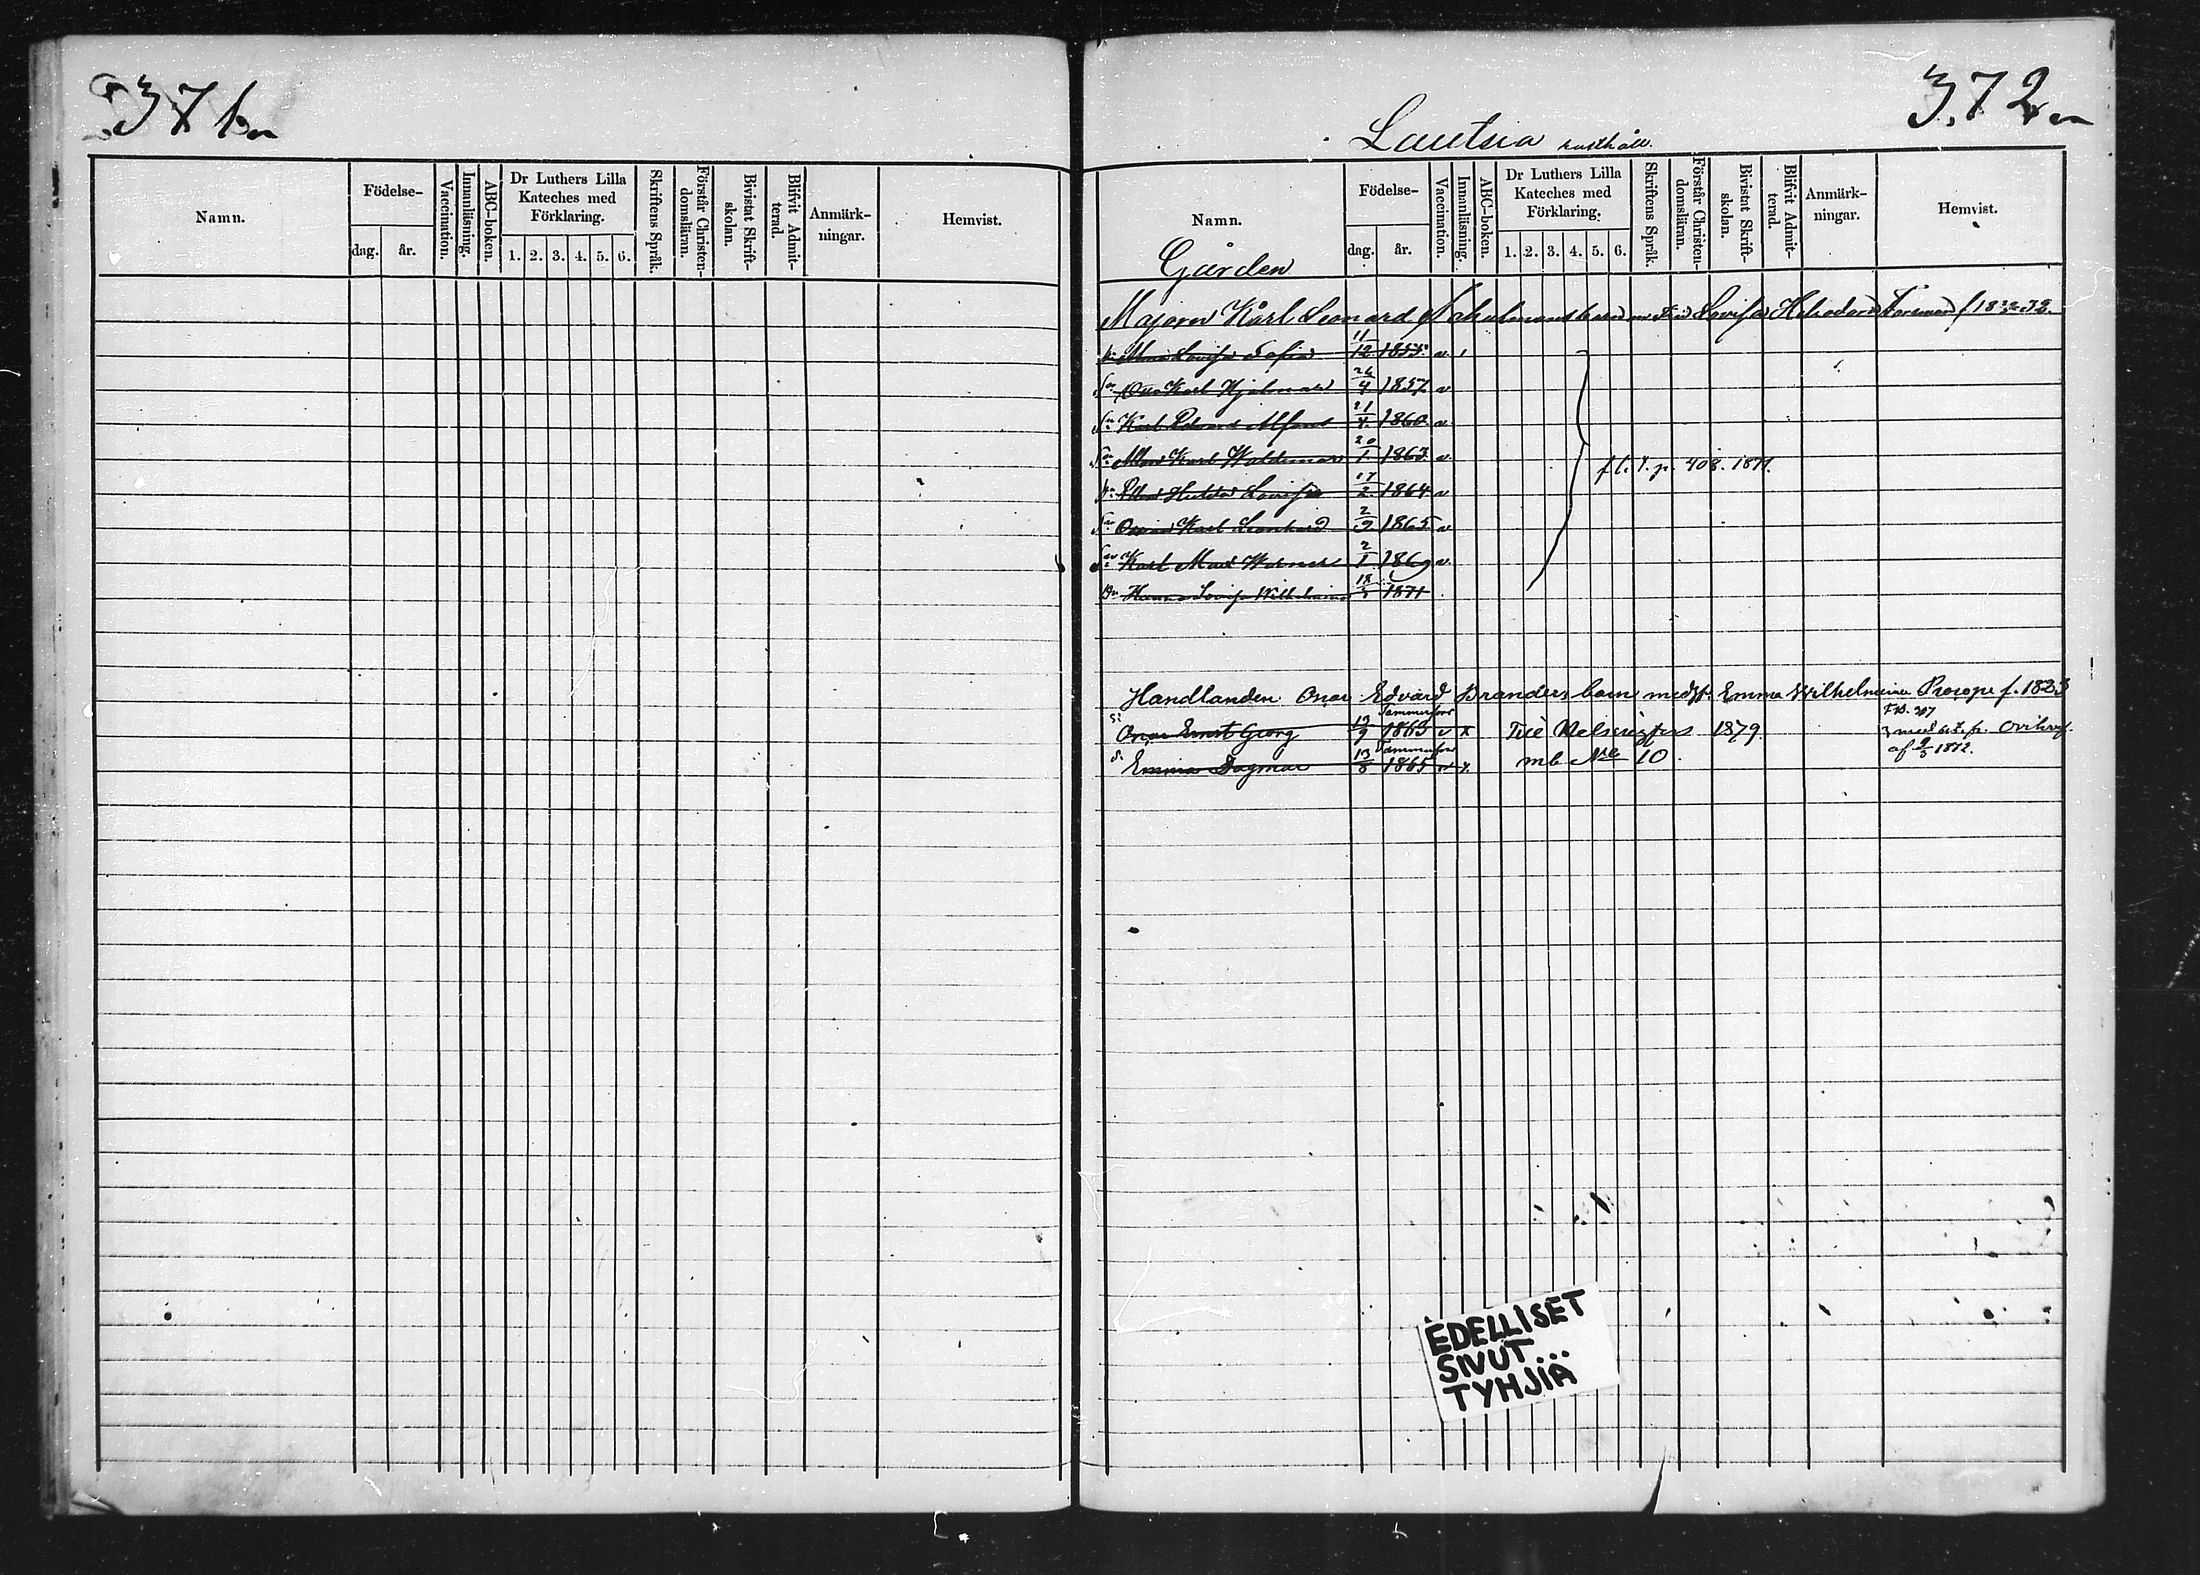 371
Namn.
Födelse-
dag.
år.
Vaccination.
Innanläsning.
ABC-boken.
Dr Luthers Lilla
Kateches med
Förklaring.
1. 2. 3. 4. 5. 6.
Skriftens Språk.
Förstår Christen-
domsläran.
Bivistat Skrift-
skolan.
Blifvit Admit-
terad.
Anmärk-
ningar.
Hemvist.
372
Lautsia rusthåll.
Namn.
Födelse-
dag.
år.
Vaccination.
Innanläsning.
ABC-boken.
Dr Luthers Lilla
Kateches med
Förklaring.
1. 2. 3. 4. 5. 6.
Skriftens Språk.
Förstår Christen-
domsläran.
Bivistat Skrift-
skolan.
Blifvit Admit-
terad.
Anmärk-
ningar.
Hemvist.
Gården
Majoren Karl Leonard barn Lovisa
Lovisa Sofia 11/12 1855 v
Otto Karl Hjalmar 26/4 1857 v
Karl Edvard Alfons 21/4 1860 v
Karl Waldemar 20/1 1863 v
p. 408. 1871.
Hulda Lovisa 17/2 1864 v
Karl Leonhard 2/9 1865 v
Karl Werner 2/1 1869 v
Lovisa Wilhelmina 18/5 1871
Handlanden Onar Edvard Branders barn med h. Emma Wilhelmina Procopé f. 1833
Tammerfors
Onar Ernst Georg 13/9 1863 v x Till Helsingfors 1879
Tammerfors
Emma Dagmar 13/8 1865 v x mb No 10.
af 9/3 1872.
EDELLISET
SIVUT...
TYHJIÄ